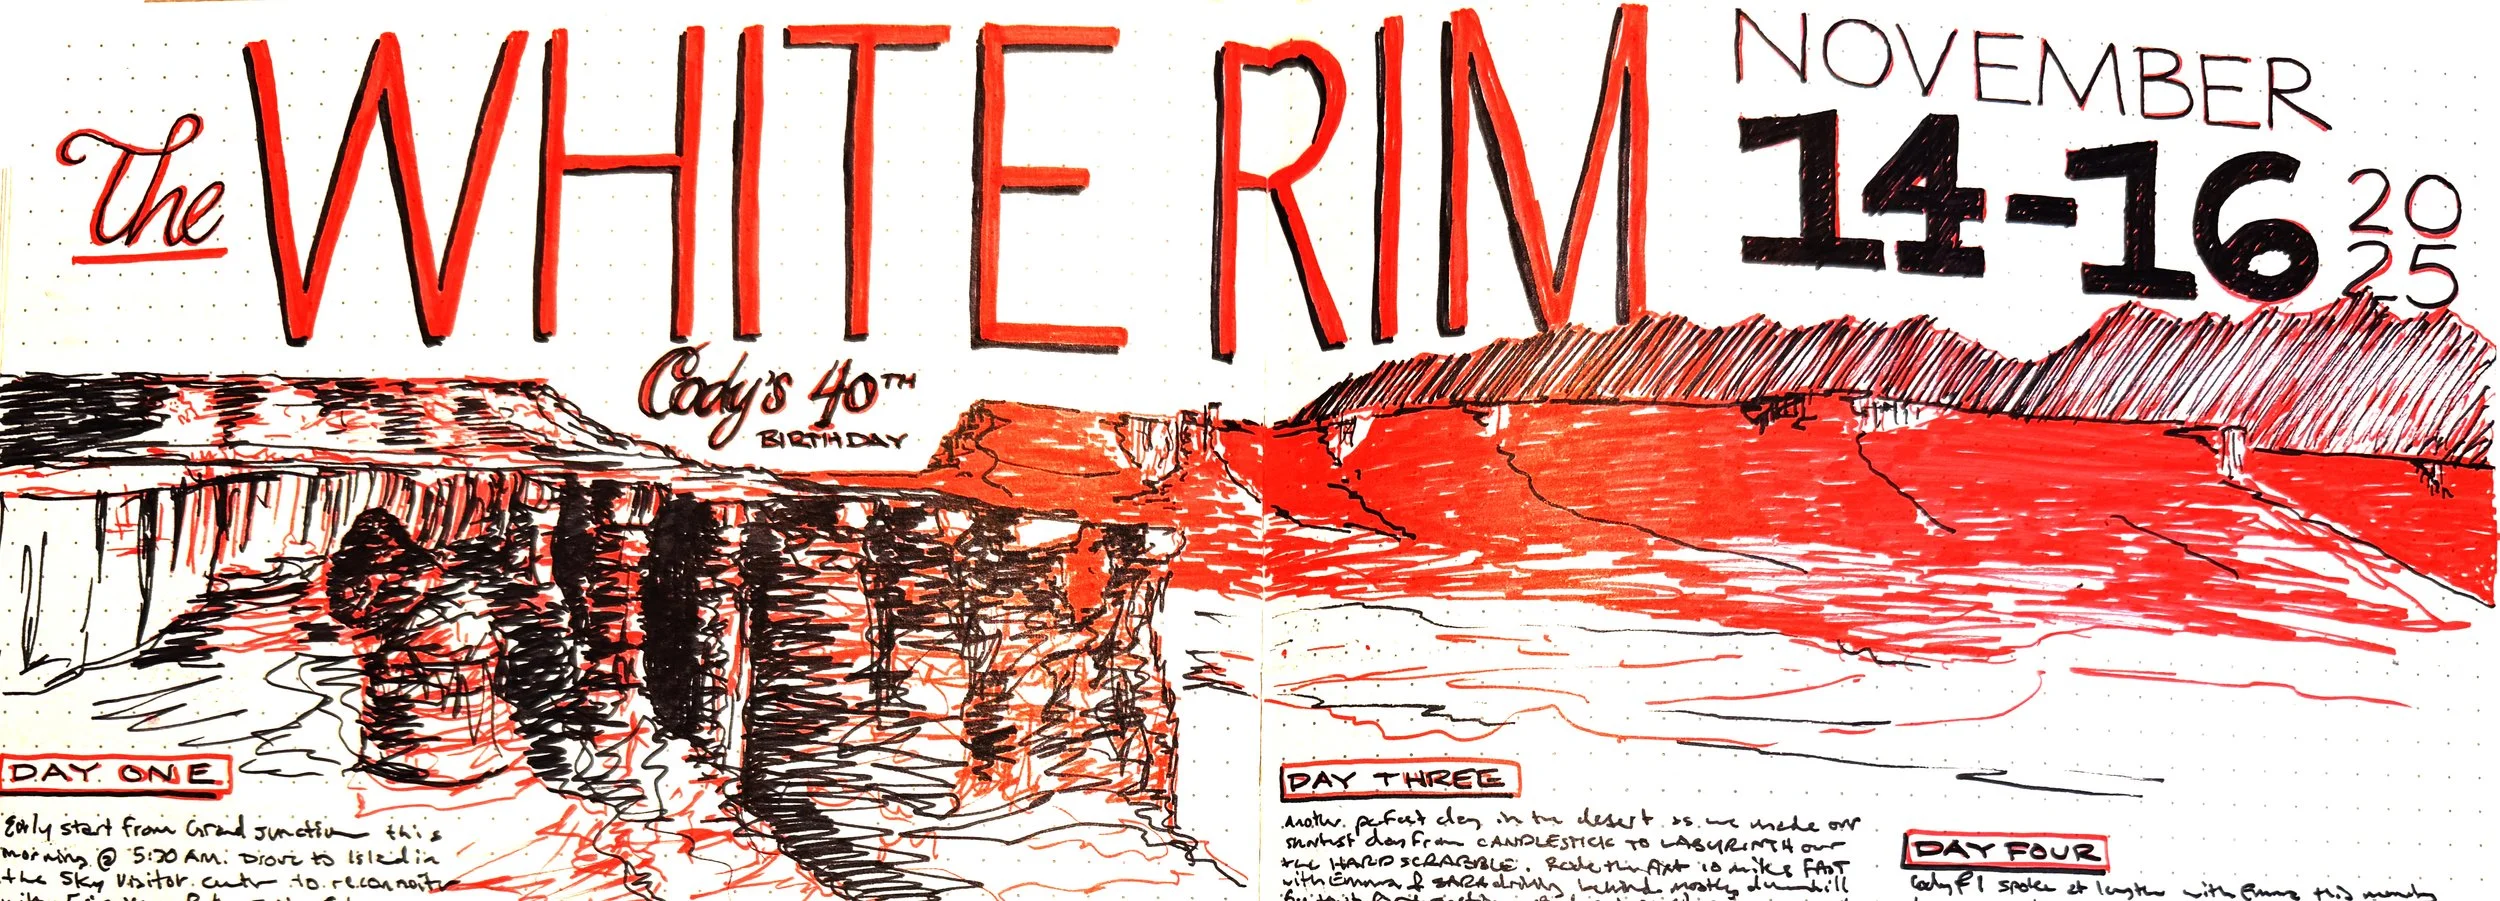 The WHITE RIM
NOVEMBER
14-16
20
25
Cody's 40TH
BIRTHDAY
DAY ONE
Early start from Grand Junction this
morning @ 5:30 AM. Drove to Island in
the Sky Visitor center to reconnoiter
DAY THREE
Another perfect day in the desert as we made our
shortest day from CANDLESTICK TO LABYRINTH over
the HARDSCRABBLE. Rode the first 10 miles FAST
with Emma & SARA driving behind mostly downhill
DAY FOUR
Cody & I spoke at length with Emma this morning